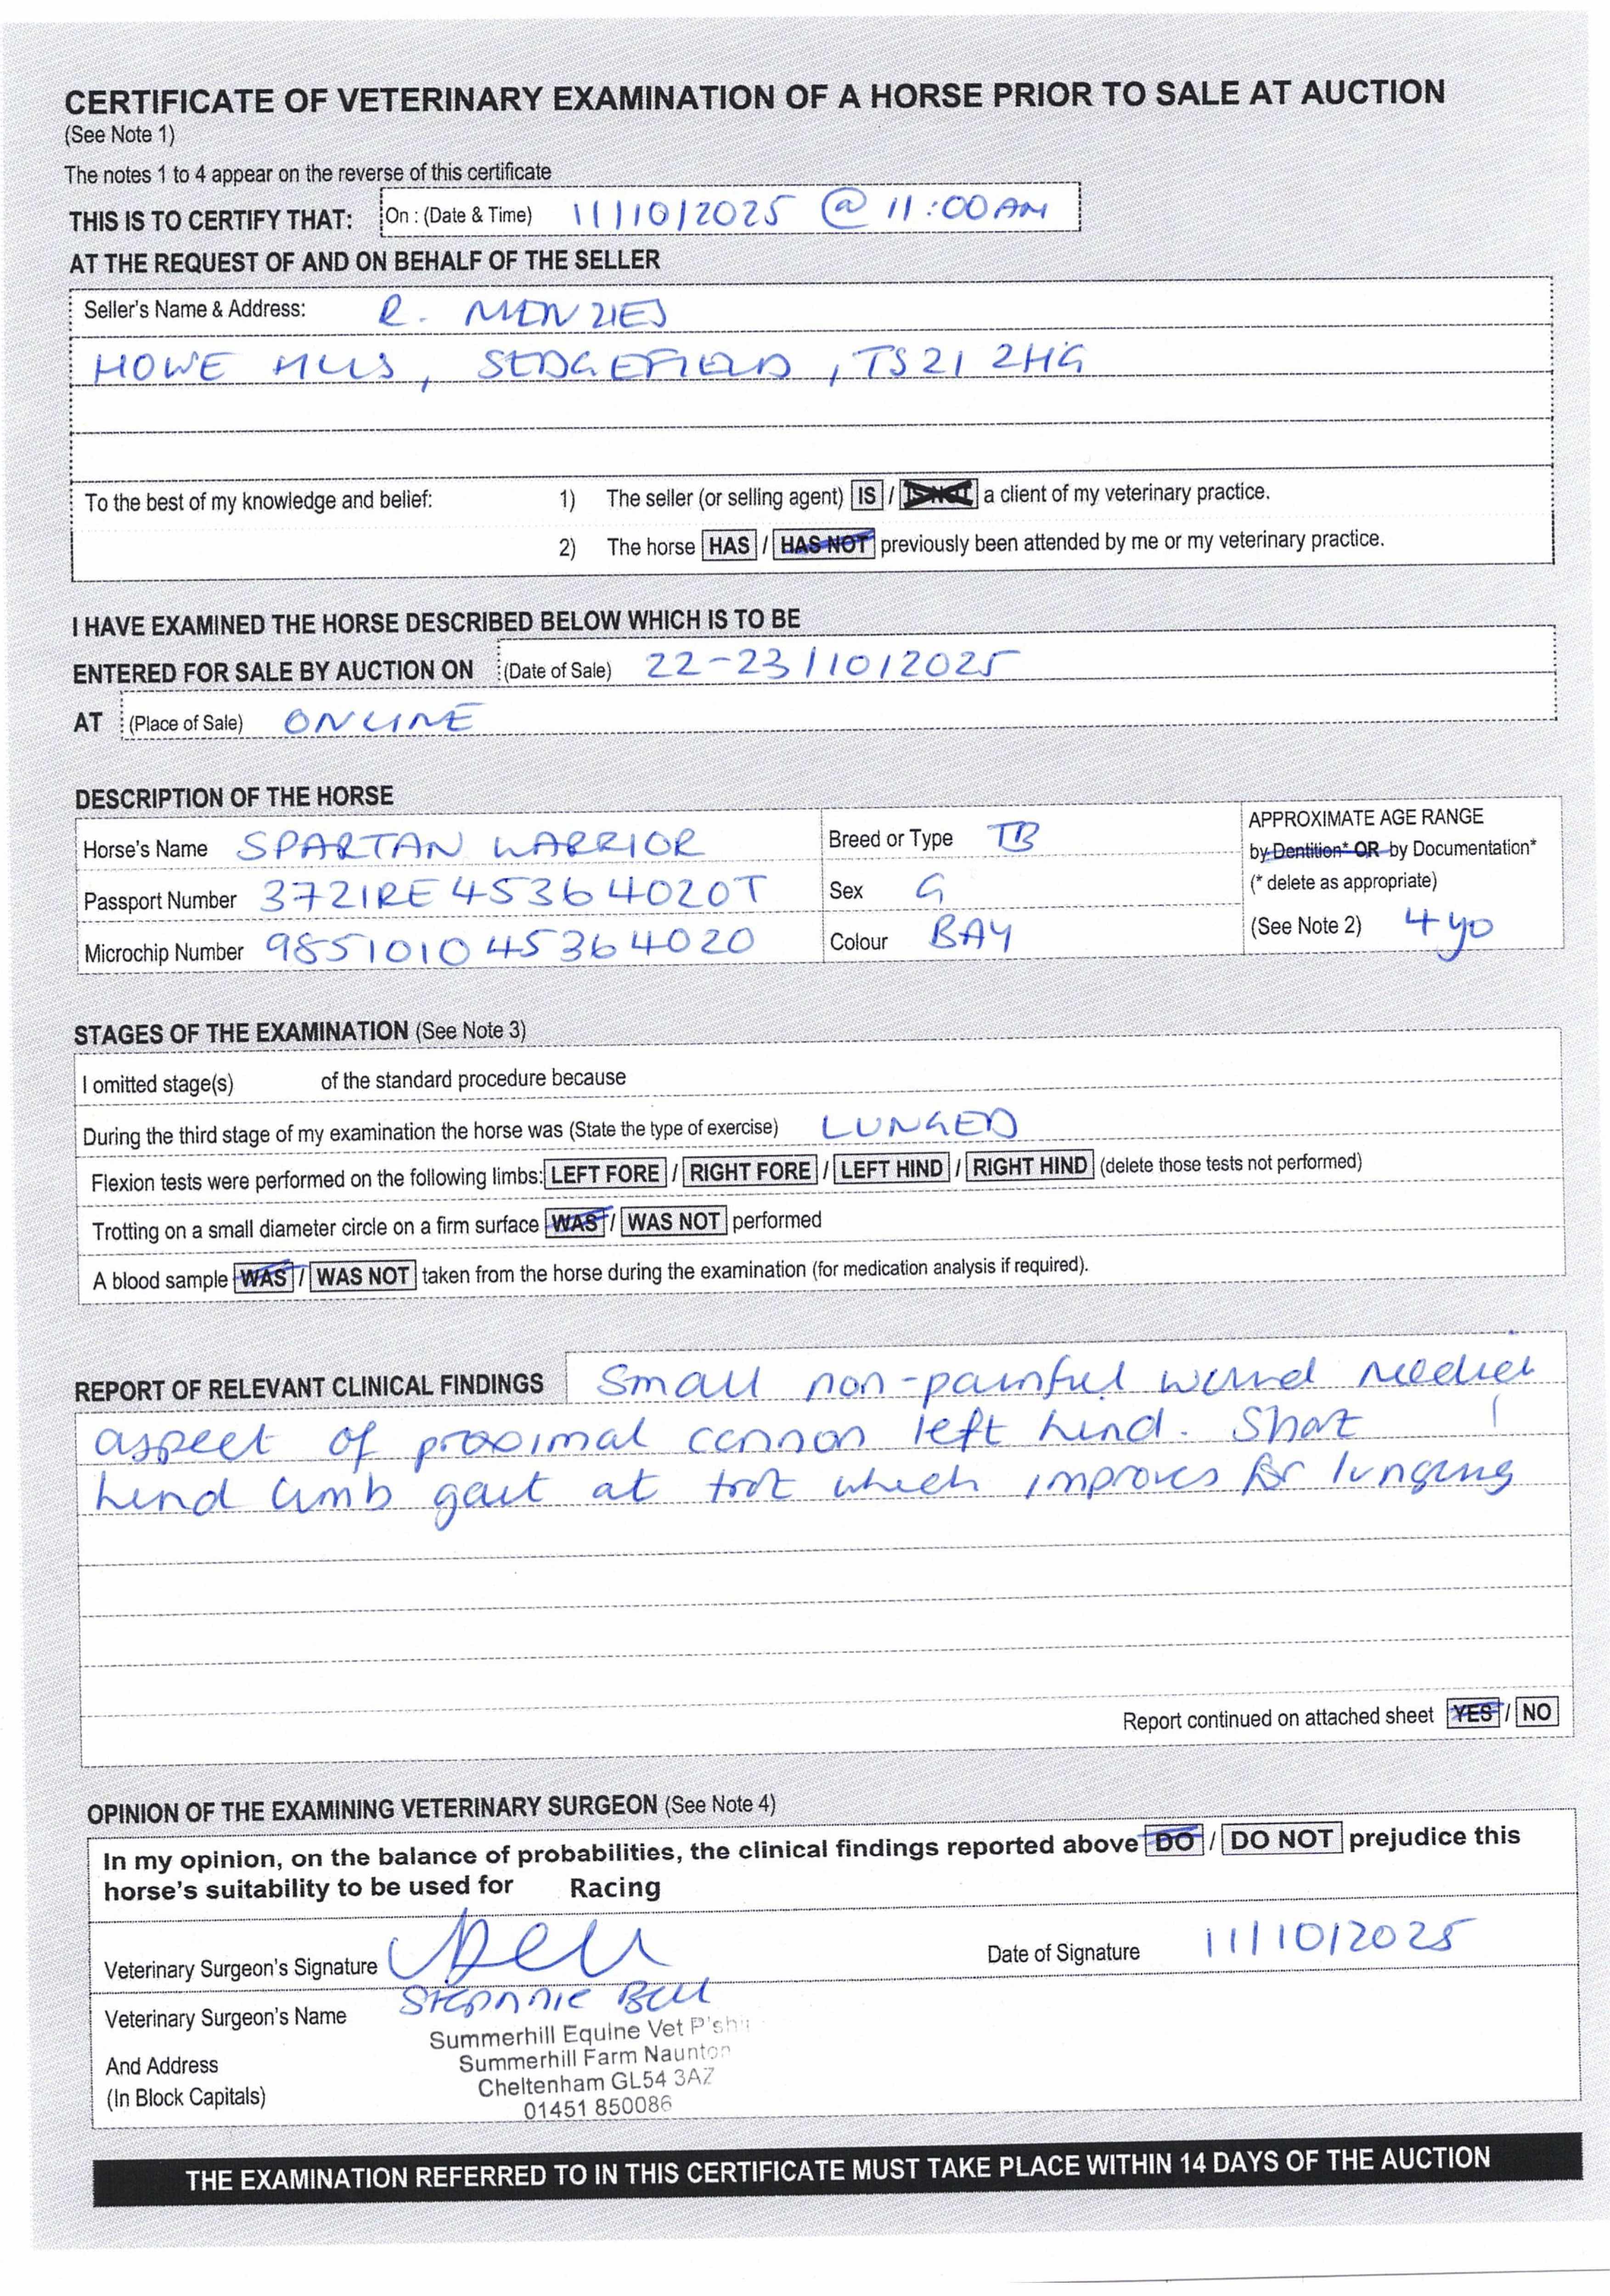 CERTIFICATE OF VETERINARY EXAMINATION OF A HORSE PRIOR TO SALE AT AUCTION
(See Note 1)
The notes 1 to 4 appear on the reverse of this certificate
THIS IS TO CERTIFY THAT: On : (Date & Time) 11/10/2025 @ 11:00AM
AT THE REQUEST OF AND ON BEHALF OF THE SELLER
Seller's Name & Address: R. MENZIES
HOWE HILLS, SEDGEFIELD, TS21 2HG
To the best of my knowledge and belief: 1) The seller (or selling agent) IS / IS NOT a client of my veterinary practice.
2) The horse HAS / HAS NOT previously been attended by me or my veterinary practice.
I HAVE EXAMINED THE HORSE DESCRIBED BELOW WHICH IS TO BE
ENTERED FOR SALE BY AUCTION ON (Date of Sale) 22-23/10/2025
AT (Place of Sale) ONLINE
DESCRIPTION OF THE HORSE
Horse's Name SPARTAN WARRIOR Breed or Type TB APPROXIMATE AGE RANGE
by Dentition* OR by Documentation*
Passport Number 372IRE45364020T Sex G (* delete as appropriate)
Microchip Number 985101045364020 Colour BAY (See Note 2) 4yo
STAGES OF THE EXAMINATION (See Note 3)
I omitted stage(s) of the standard procedure because
During the third stage of my examination the horse was (State the type of exercise) LUNGED
Flexion tests were performed on the following limbs: LEFT FORE / RIGHT FORE / LEFT HIND / RIGHT HIND (delete those tests not performed)
Trotting on a small diameter circle on a firm surface WAS / WAS NOT performed
A blood sample WAS / WAS NOT taken from the horse during the examination (for medication analysis if required).
REPORT OF RELEVANT CLINICAL FINDINGS Small non-painful wound medial
aspect of proximal cannon left hind. Short
hind limb gait at trot which improves for lunging
Report continued on attached sheet YES / NO
OPINION OF THE EXAMINING VETERINARY SURGEON (See Note 4)
In my opinion, on the balance of probabilities, the clinical findings reported above DO / DO NOT prejudice this
horse's suitability to be used for Racing
Veterinary Surgeon's Signature Date of Signature 11/10/2025
Veterinary Surgeon's Name Bell
Summerhill Equine Vet P'ship
And Address Summerhill Farm Naunton
Cheltenham GL54 3AZ
(In Block Capitals) 01451 850086
THE EXAMINATION REFERRED TO IN THIS CERTIFICATE MUST TAKE PLACE WITHIN 14 DAYS OF THE AUCTION